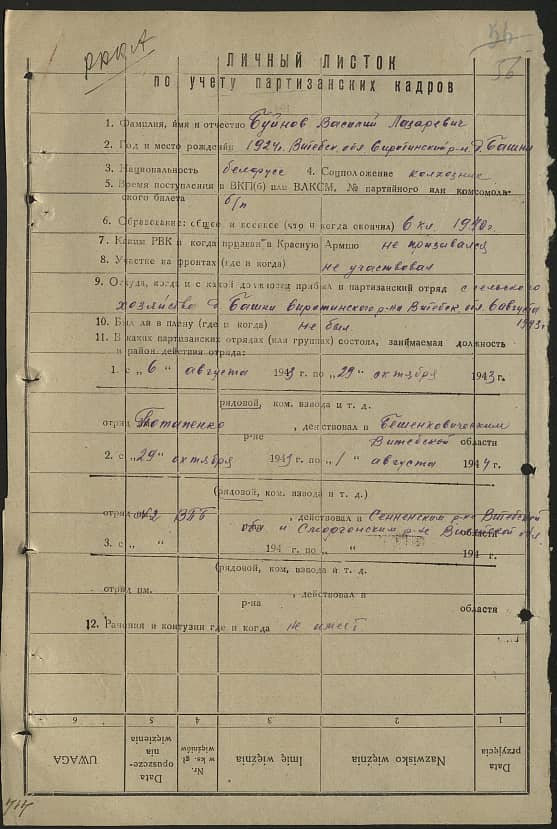 РККА
54
56
ЛИЧНЫЙ ЛИСТОК
по учету партизанских кадров
1. Фамилия, имя и отчество Буйнов Василий Лазаревич
2. Год и место рождения 1924г. Витебск. обл Сиротинский р-н д. Башки
3. Национальность белорусс 4. Соцположение колхозник
5. Время поступления в ВКП(б) или ВЛКСМ, № партийного или комсомоль-
ского билета б/п
6. Образование: общее и военное (что и когда окончил) 6 кл. 1940г.
7. Каким РВК и когда призван в Красную Армию не призывался
8. Участие на фронтах (где и когда) не участвовал
9. Откуда, когда и с какой должности прибыл в партизанский отряд с сельского
хозяйства д. Башки Сиротинского р-на Витебск. обл. 6 августа
1943г
10. Был ли в плену (где и когда) не был
11. В каких партизанских отрядах (или группах) состоял, занимаемая должность
и район действия отряда:
1. с „6" августа 1943 г. по „29" октября 1943 г.
рядовой, ком. взвода и т. д.
отряд Потапенко, действовал в Бешенковическим
р-не Витебской области
2. с „29" октября 1943 г. по „1" августа 1944 г.
(рядовой, ком. взвода и т. д.)
отряд №2 ВПБ, действовал в Сенненским р-не Витебской
обл и Сморгонским р-не области обл.
3. с „ " 194 г. по „ " 194 г.
(рядовой, ком. взвода и т. д.
отряд им. , действовал в
р-на области
12. Ранения и контузии где и когда не имеет
6 5 4 3 2 1
UWAGA
Data opuszcze- nia więzienia
Nr. w ks. gł. więźniów
Imię więźnia
Nazwisko więźnia
Data przyjęcia